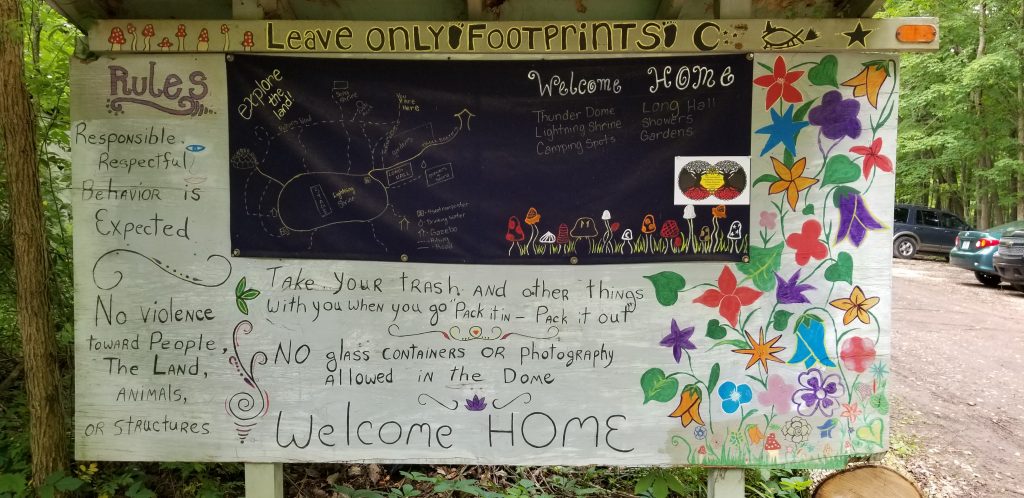 Leave Only Footprints
Rules
Responsible.
Respectful
Behavior is
Expected.
No violence
toward People,
The Land,
animals,
or structures
explore
the
land!
You
Are
Here
Lightning
Shrine
Drinking water
Gazebo
Road
Welcome HOME
Thunder Dome
Lightning Shrine
Camping Spots
Long Hall
Showers
Gardens
Take your trash and other things
with you when you go "Pack it in - Pack it out"
NO glass containers or photography
allowed in the Dome
Welcome HOME